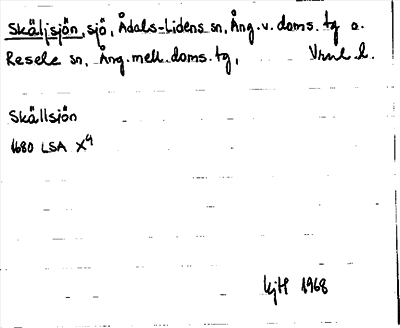 Skäljsjön, sjö, Ådals-Lidens sn, Ång. v. doms. tg o.
Resele sn, Ång. mell. doms. tg, Vrnl. l.
Skällsjön
1680 LSA X4
KjH 1968